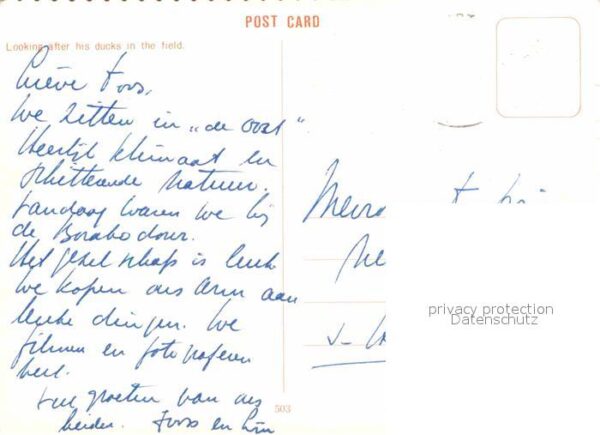 POST CARD
Looking after his ducks in the field.
Lieve Toos,
We zitten in „de oost"
Heerlijk klimaat en
schitterende natuur.
Vandaag waren we bij
de Borobodour.
Het gezelschap is leuk
We kopen ons arm aan
leuke dingen. We
filmen en fotograferen
veel.
Vele groeten van ons
beiden. Joos en
Mevr
privacy protection
Datenschutz
503